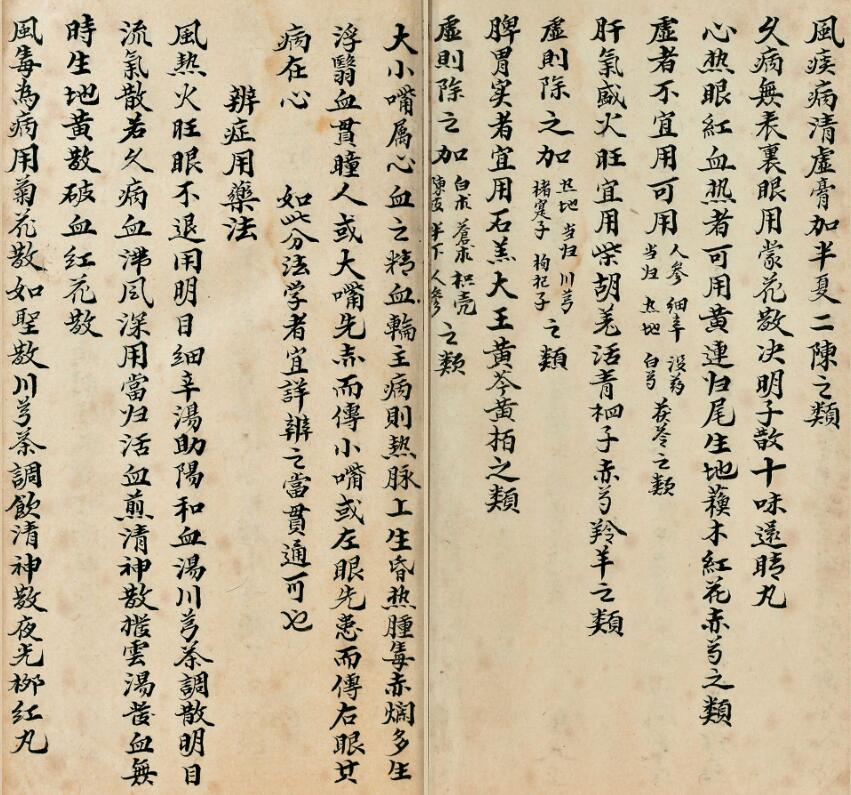 風疾病清虚膏加半夏二陳之類
久病無表裏眼用蒙花散决明子散十味還睛丸
心热眼紅血热者可用黄連归尾生地蘓木紅花赤芎之類
虚者不宜用可用人參 細辛 没药 茯苓之類
当归 热地 白芎
肝氣盛火旺宜用柴胡羌活青栀子赤芎羚羊之類
虚則除之加热地 当归 川芎
楮寔子 枸杞子 之類
脾胃实者宜用石羔大王黄芩黄柏之類
虚則除之加白术 蒼术 枳壳
陳皮 半下 人參 之類
大小嘴属心血之精血輪主病則热脉上生昏热腫毒赤爛多生
浮翳血貫瞳人或大嘴先赤而傳小嘴或左眼先患而傳右眼其
病在心 如此分法学者宜詳辨之當貫通可也
辨症用藥法
風热火旺眼不退用明目細辛湯助陽和血湯川芎茶調散明目
流氣散若久病血滞風深用當归活血煎清神散撥雲湯發血無
時生地黄散破血紅花散
風毒為病用菊花散如聖散川芎茶調飲清神散夜光柳紅丸